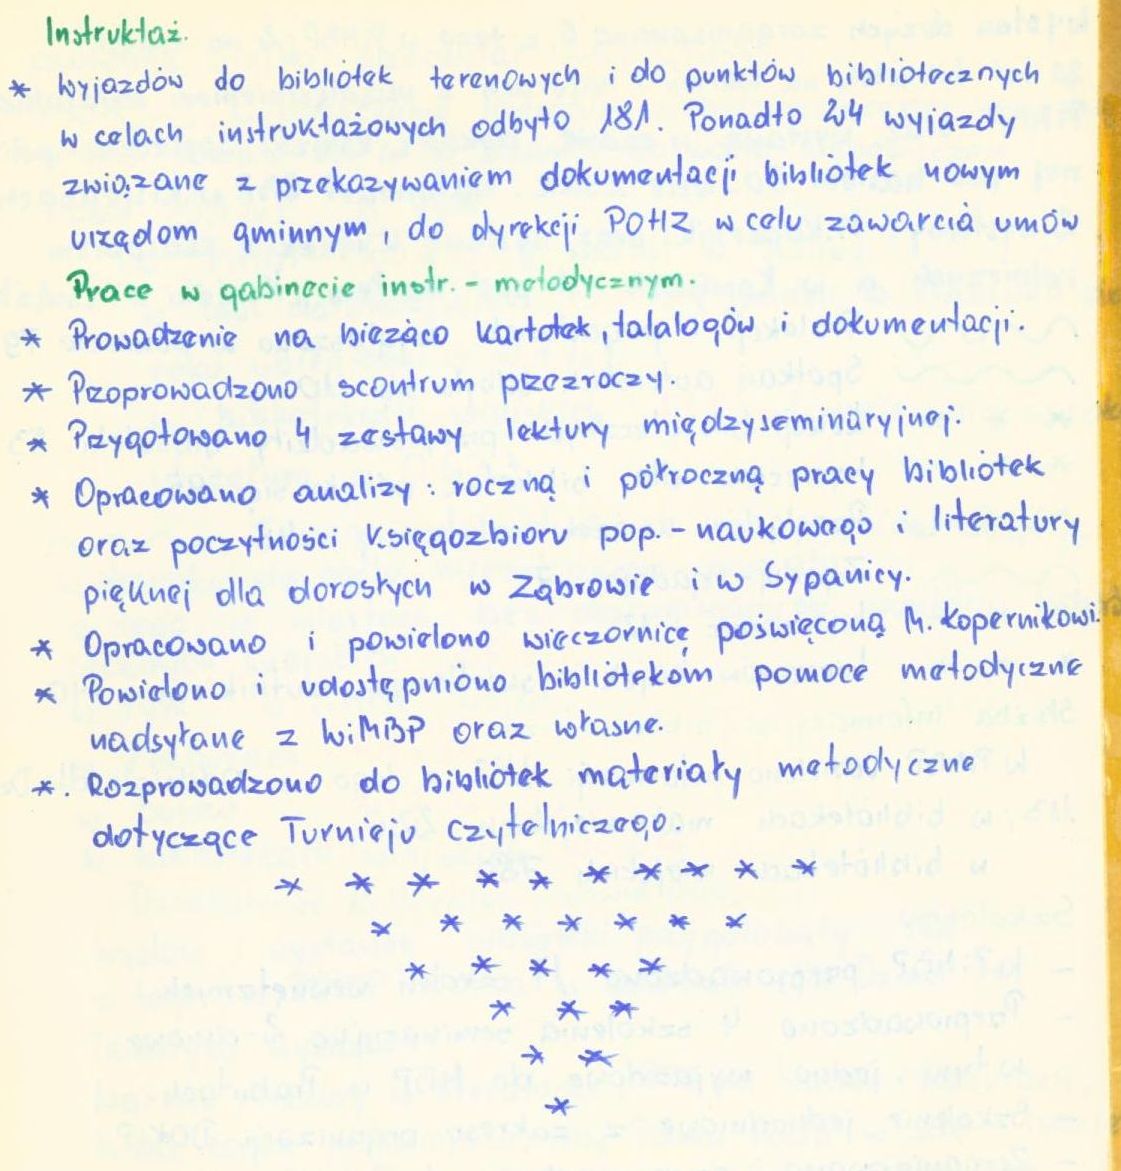 Instruktaż.
* Wyjazdów do bibliotek terenowych i do punktów bibliotecznych
w celach instruktażowych odbyto 181. Ponadto 24 wyjazdy
związane z przekazywaniem dokumentacji bibliotek nowym
urzędom gminnym, do dyrekcji POHZ w celu zawarcia umów
Prace w gabinecie instr. - metodycznym.
* Prowadzenie na bieżąco kartotek, talalogów i dokumentacji.
* Przeprowadzono scontrum przezroczy
* Przygotowano 4 zestawy lektury międzyseminaryjnej.
* Opracowano analizy: roczną i półroczną pracy bibliotek
oraz poczytności księgozbioru pop. - naukowego i literatury
pięknej dla dorosłych w Ząbrowie i w Sypanicy.
* Opracowano i powielono wieczornicę poświęconą M. Kopernikowi.
* Powielono i udostępniono bibliotekom pomoce metodyczne
nadsyłane z WiMBP oraz własne.
*. Rozprowadzono do bibliotek materiały metodyczne
dotyczące Turnieju Czytelniczego.
* * * * * * * * * *
* * * * * * *
* * * * *
* * *
* *
*